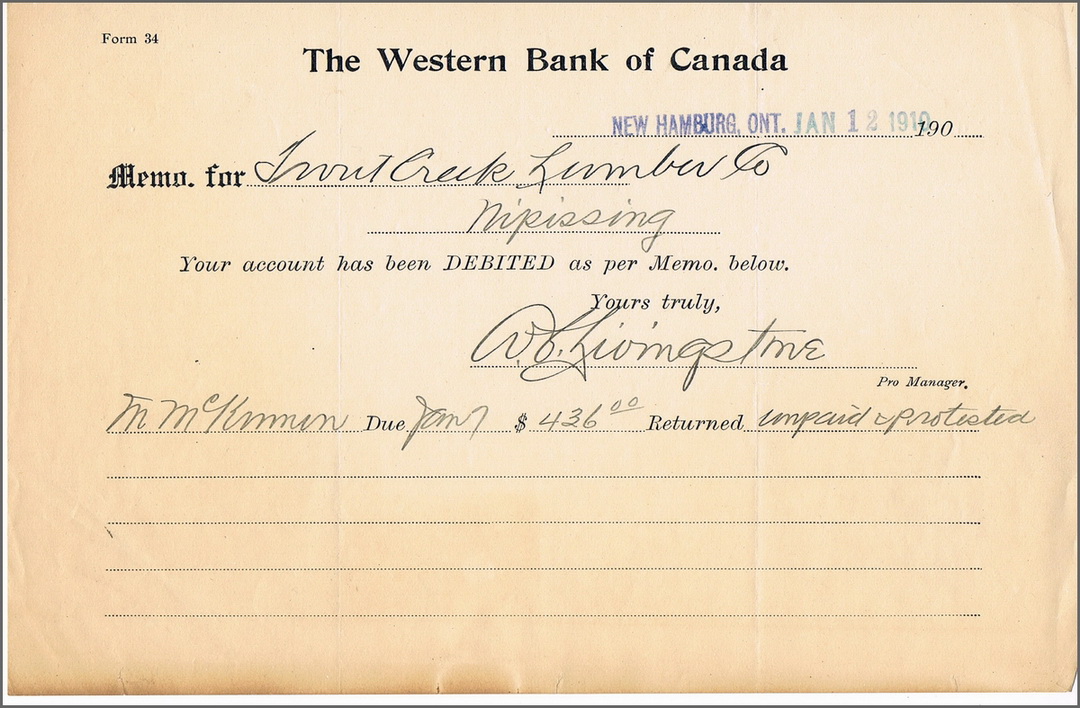 Form 34
The Western Bank of Canada
NEW HAMBURG, ONT. JAN 12 1910 190
Memo. for Trout Creek Lumber Co
Nipissing
Your account has been DEBITED as per Memo. below.
Yours truly,
Livingstone
Pro Manager.
M McKinnon Due Jan 7 $ 436 00 Returned unpaid & protested